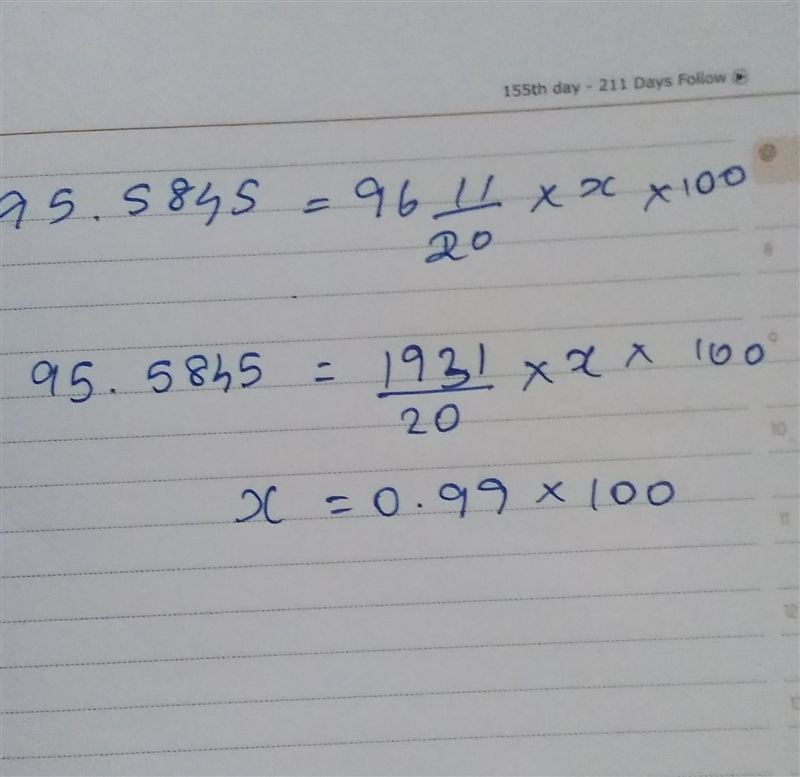 155th day - 211 Days Follow
95.5845 = 96 11/20 × x × 100
95.5845 = 1931/20 × x × 100
x = 0.99 × 100
8
10
11
12